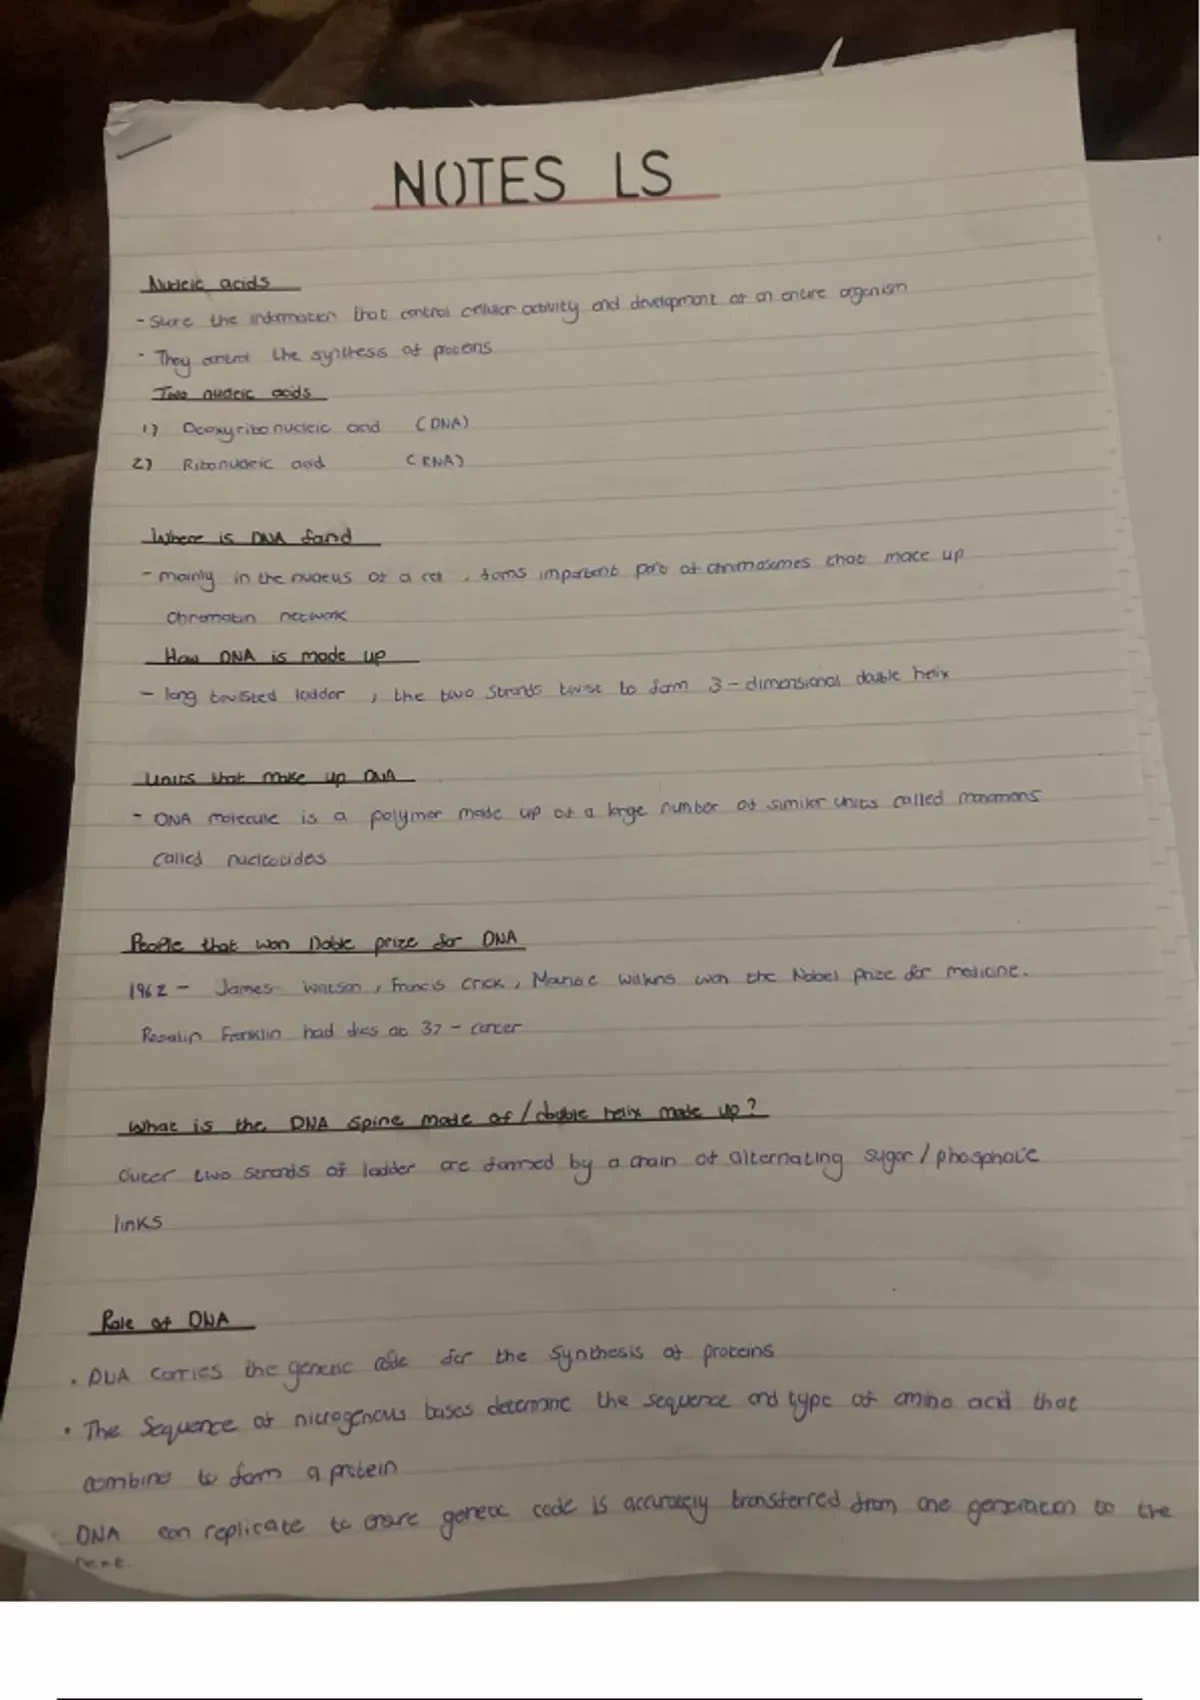 NOTES LS
Nucleic acids
- Store the information that control cellular activity and development of an entire organism
- They control the synthesis of proteins
Two nucleic acids
1) Deoxyribonucleic acid (DNA)
2) Ribonucleic acid (RNA)
Where is DNA found
- mainly in the nucleus of a cell, forms important part of chromosomes that make up
Chromatin network
How DNA is made up
- long twisted ladder, the two strands twist to form 3-dimensional double helix
Units that make up DNA
- DNA molecule is a polymer made up of a large number of similar units called monomers
called nucleotides
People that won Noble prize for DNA
1962 - James Watson, Francis Crick, Maurice Wilkins won the Nobel prize for medicine.
Rosalin Franklin had dies at 37 - cancer
What is the DNA spine made of / double helix made up?
Outer two strands of ladder are formed by a chain of alternating sugar / phosphate
links
Role of DNA
• DNA carries the genetic code for the synthesis of proteins
• The sequence of nitrogenous bases determine the sequence and type of amino acid that
combine to form a protein
• DNA can replicate to ensure genetic code is accurately transferred from one generation to the
next.